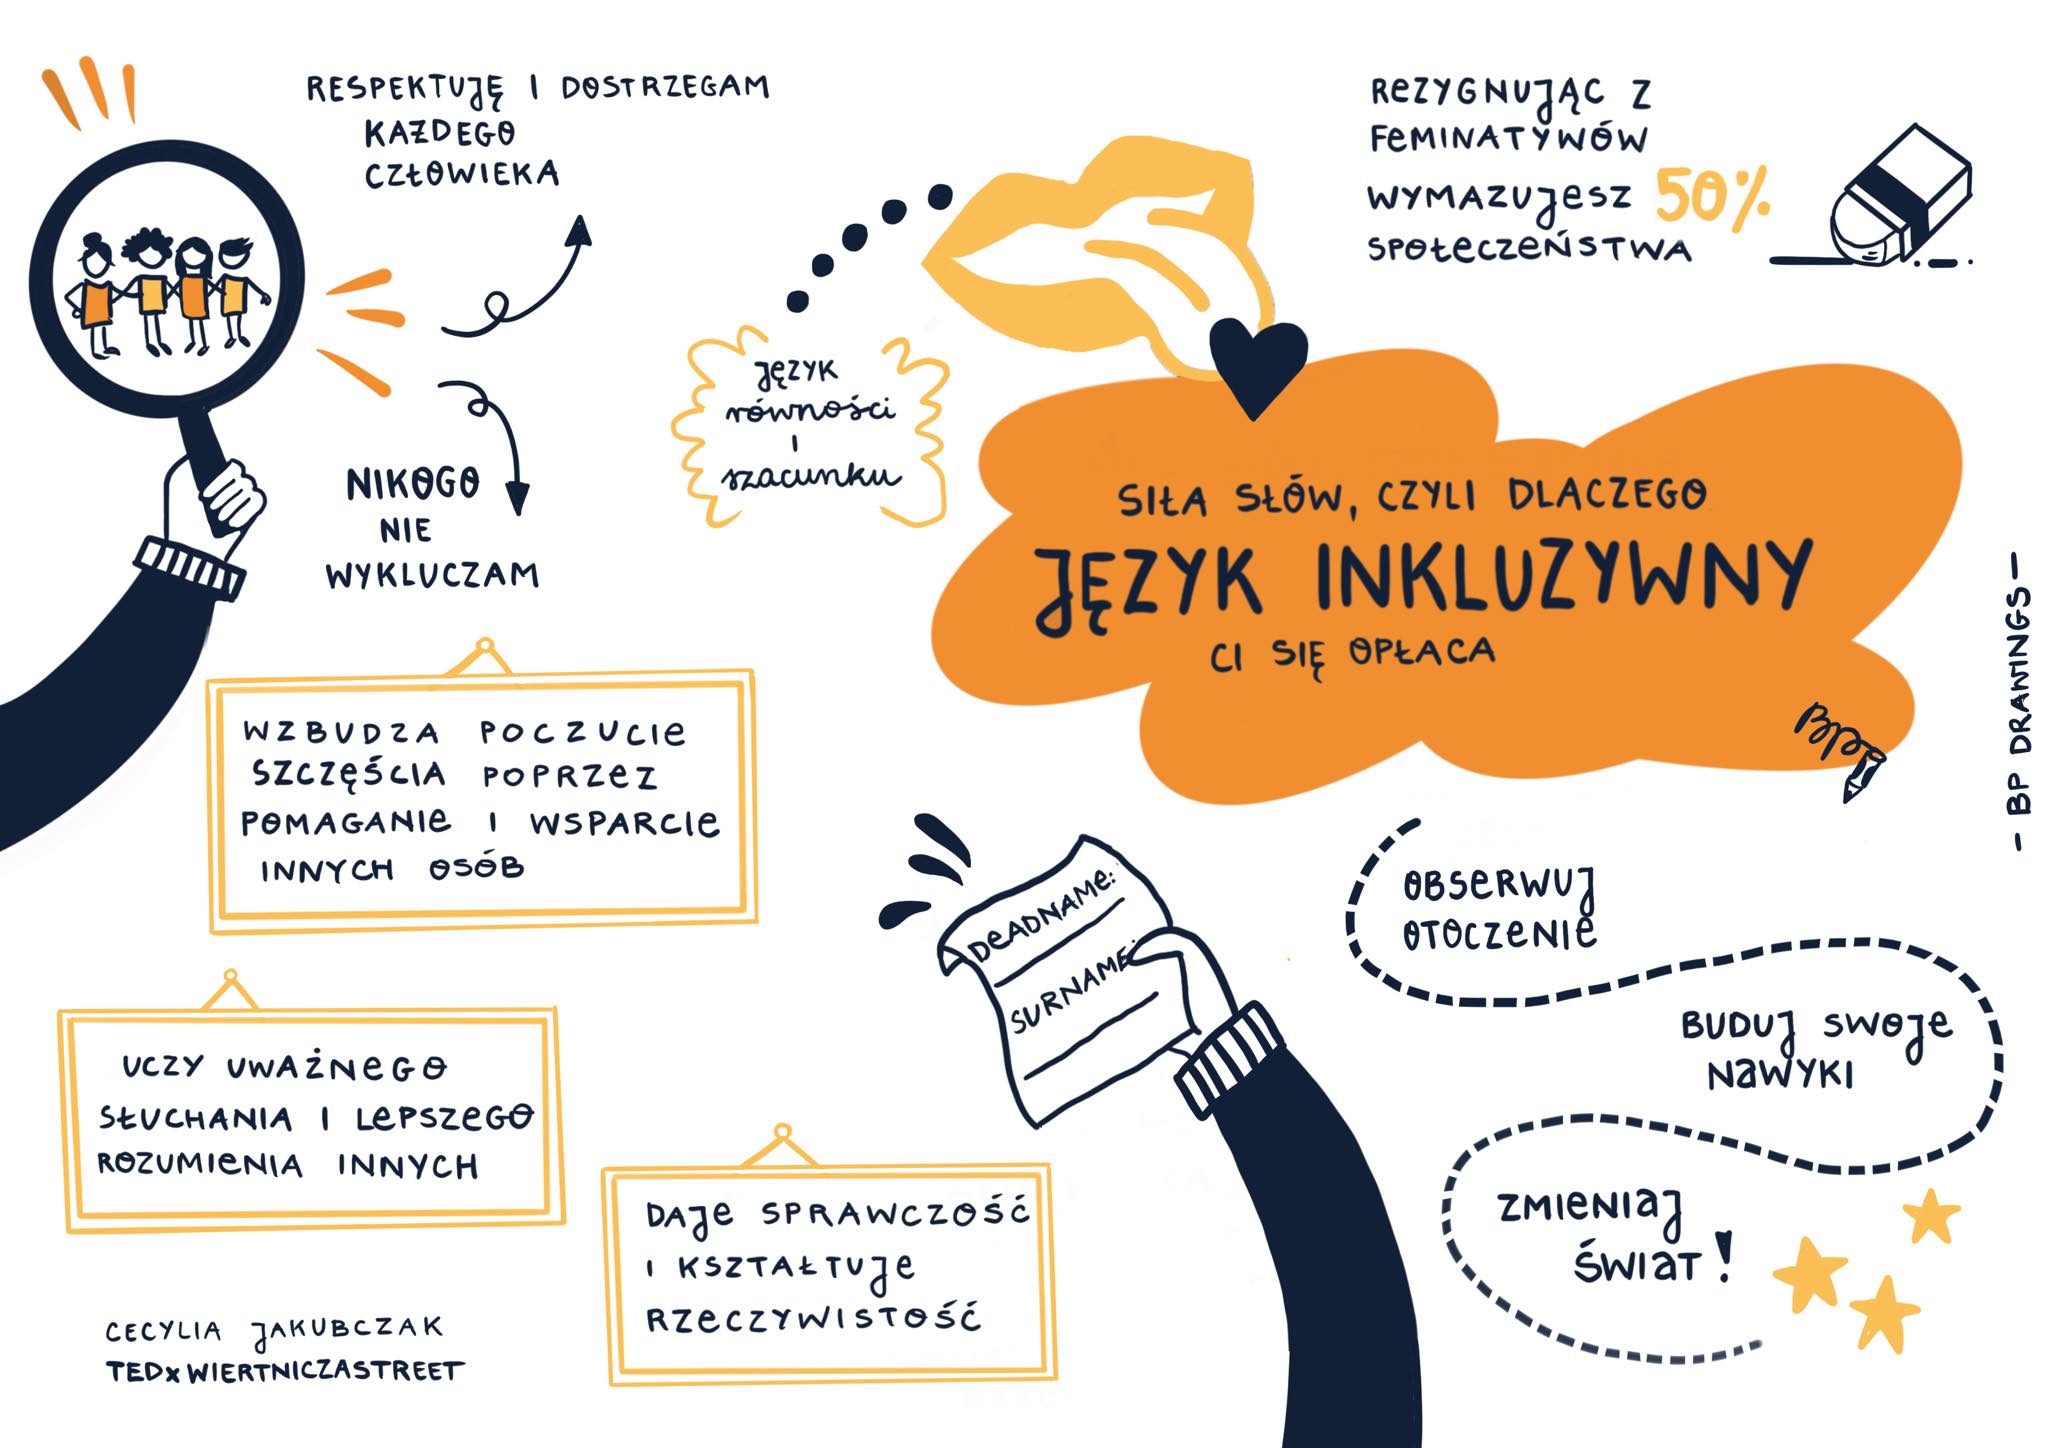 RESPEKTUJĘ I DOSTRZEGAM
KAŻDEGO
CZŁOWIEKA
NIKOGO
NIE
WYKLUCZAM
JĘZYK
równości
i
szacunku
REZYGNUJĄC Z
FEMINATYWÓW
WYMAZUJESZ 50%
SPOŁECZEŃSTWA
SIŁA SŁÓW, CZYLI DLACZEGO
JĘZYK INKLUZYWNY
CI SIĘ OPŁACA
BP
- BP DRAWINGS -
WZBUDZA POCZUCIE
SZCZĘŚCIA POPRZEZ
POMAGANIE I WSPARCIE
INNYCH OSÓB
UCZY UWAŻNEGO
SŁUCHANIA I LEPSZEGO
ROZUMIENIA INNYCH
DAJE SPRAWCZOŚĆ
I KSZTAŁTUJE
RZECZYWISTOŚĆ
DEADNAME:
SURNAME:
OBSERWUJ
OTOCZENIE
BUDUJ SWOJE
NAWYKI
ZMIENIAJ
ŚWIAT!
CECYLIA JAKUBCZAK
TEDx WIERTNICZASTREET